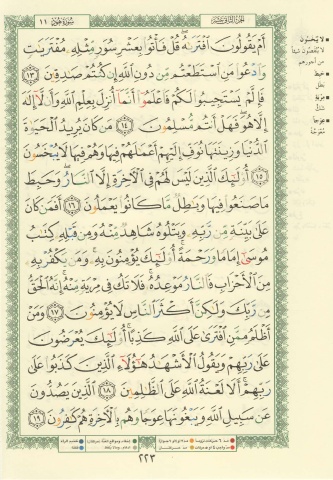 سورة هود ١١
الجزء الثاني عشر
أَمْ يَقُولُونَ افْتَرَىٰهُ قُلْ فَأْتُوا بِعَشْرِ سُوَرٍ مِّثْلِهِ مُفْتَرَيَٰتٍ
وَادْعُوا مَنِ اسْتَطَعْتُم مِّن دُونِ اللَّهِ إِن كُنتُمْ صَٰدِقِينَ ١٣
فَإِلَّمْ يَسْتَجِيبُوا لَكُمْ فَاعْلَمُوا أَنَّمَا أُنزِلَ بِعِلْمِ اللَّهِ وَأَن لَّا إِلَٰهَ
إِلَّا هُوَ فَهَلْ أَنتُم مُّسْلِمُونَ ١٤ مَن كَانَ يُرِيدُ الْحَيَوٰةَ
الدُّنْيَا وَزِينَتَهَا نُوَفِّ إِلَيْهِمْ أَعْمَٰلَهُمْ فِيهَا وَهُمْ فِيهَا لَا يُبْخَسُونَ
١٥ أُولَٰئِكَ الَّذِينَ لَيْسَ لَهُمْ فِي الْآخِرَةِ إِلَّا النَّارُ وَحَبِطَ
مَا صَنَعُوا فِيهَا وَبَٰطِلٌ مَّا كَانُوا يَعْمَلُونَ ١٦ أَفَمَن كَانَ
عَلَىٰ بَيِّنَةٍ مِّن رَّبِّهِ وَيَتْلُوهُ شَاهِدٌ مِّنْهُ وَمِن قَبْلِهِ كِتَٰبُ
مُوسَىٰ إِمَامًا وَرَحْمَةً أُولَٰئِكَ يُؤْمِنُونَ بِهِ وَمَن يَكْفُرْ بِهِ
مِنَ الْأَحْزَابِ فَالنَّارُ مَوْعِدُهُ فَلَا تَكُ فِي مِرْيَةٍ مِّنْهُ إِنَّهُ الْحَقُّ
مِن رَّبِّكَ وَلَٰكِنَّ أَكْثَرَ النَّاسِ لَا يُؤْمِنُونَ ١٧ وَمَنْ
أَظْلَمُ مِمَّنِ افْتَرَىٰ عَلَى اللَّهِ كَذِبًا أُولَٰئِكَ يُعْرَضُونَ
عَلَىٰ رَبِّهِمْ وَيَقُولُ الْأَشْهَٰدُ هَٰؤُلَاءِ الَّذِينَ كَذَبُوا عَلَىٰ
رَبِّهِمْ أَلَا لَعْنَةُ اللَّهِ عَلَى الظَّٰلِمِينَ ١٨ الَّذِينَ يَصُدُّونَ
عَن سَبِيلِ اللَّهِ وَيَبْغُونَهَا عِوَجًا وَهُم بِالْآخِرَةِ هُمْ كَٰفِرُونَ ١٩
لا يُبْخَسُون
لا يُنقصون شيئاً
من أجورهم
حَبِطَ
بطل
مِرْيَةٍ
شك
عِوَجاً
معوجة
٢٢٣